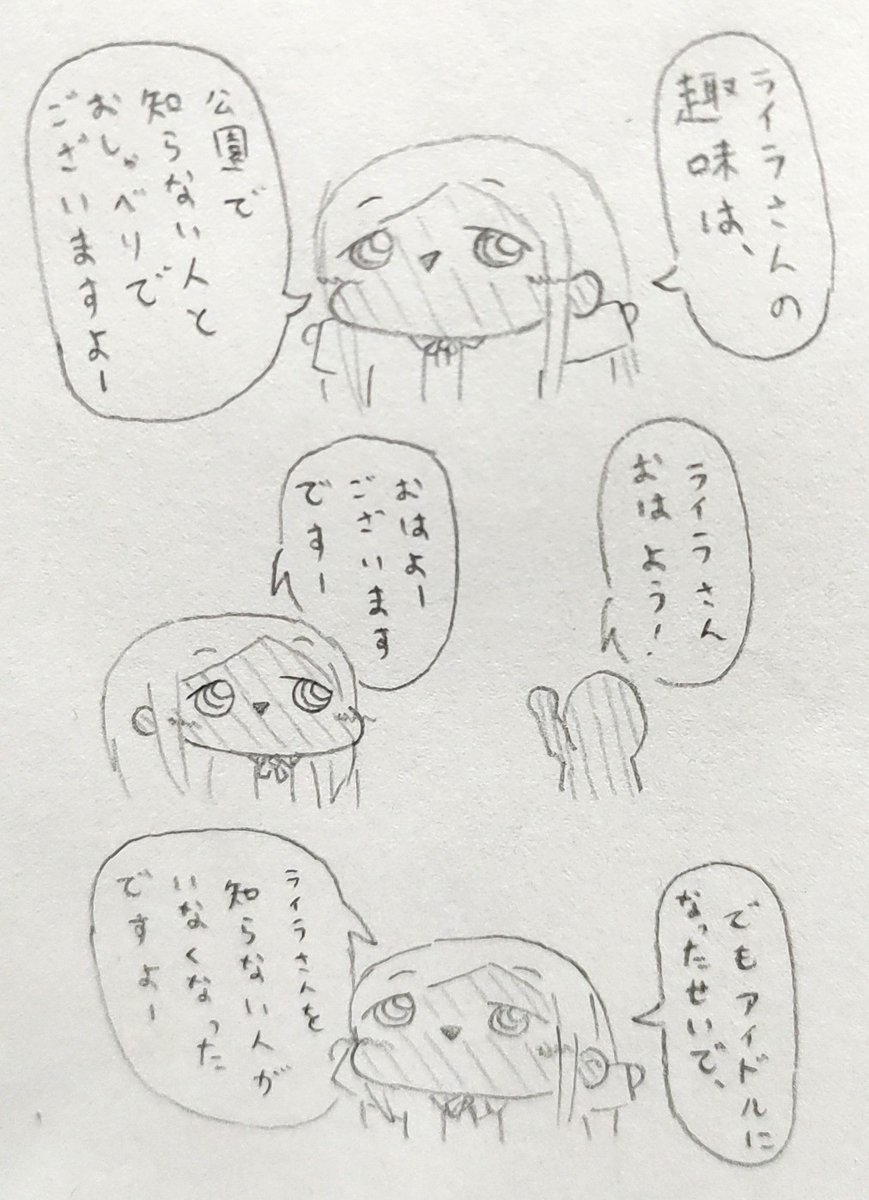 ライラさんの
趣味は、
公園で
知らない人と
おしゃべりで
ございますよー
ライラさん
おはよう!
おはよー
ございます
ですー
でもアイドルに
なったせいで、
ライラさんを
知らない人が
いなくなった
ですよー